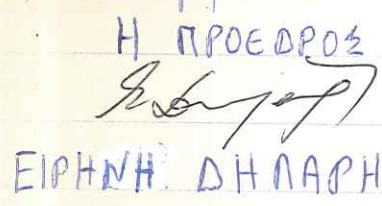 Η ΠΡΟΕΔΡΟΣ
ΕΙΡΗΝΗ ΔΗΛΑΡΗ